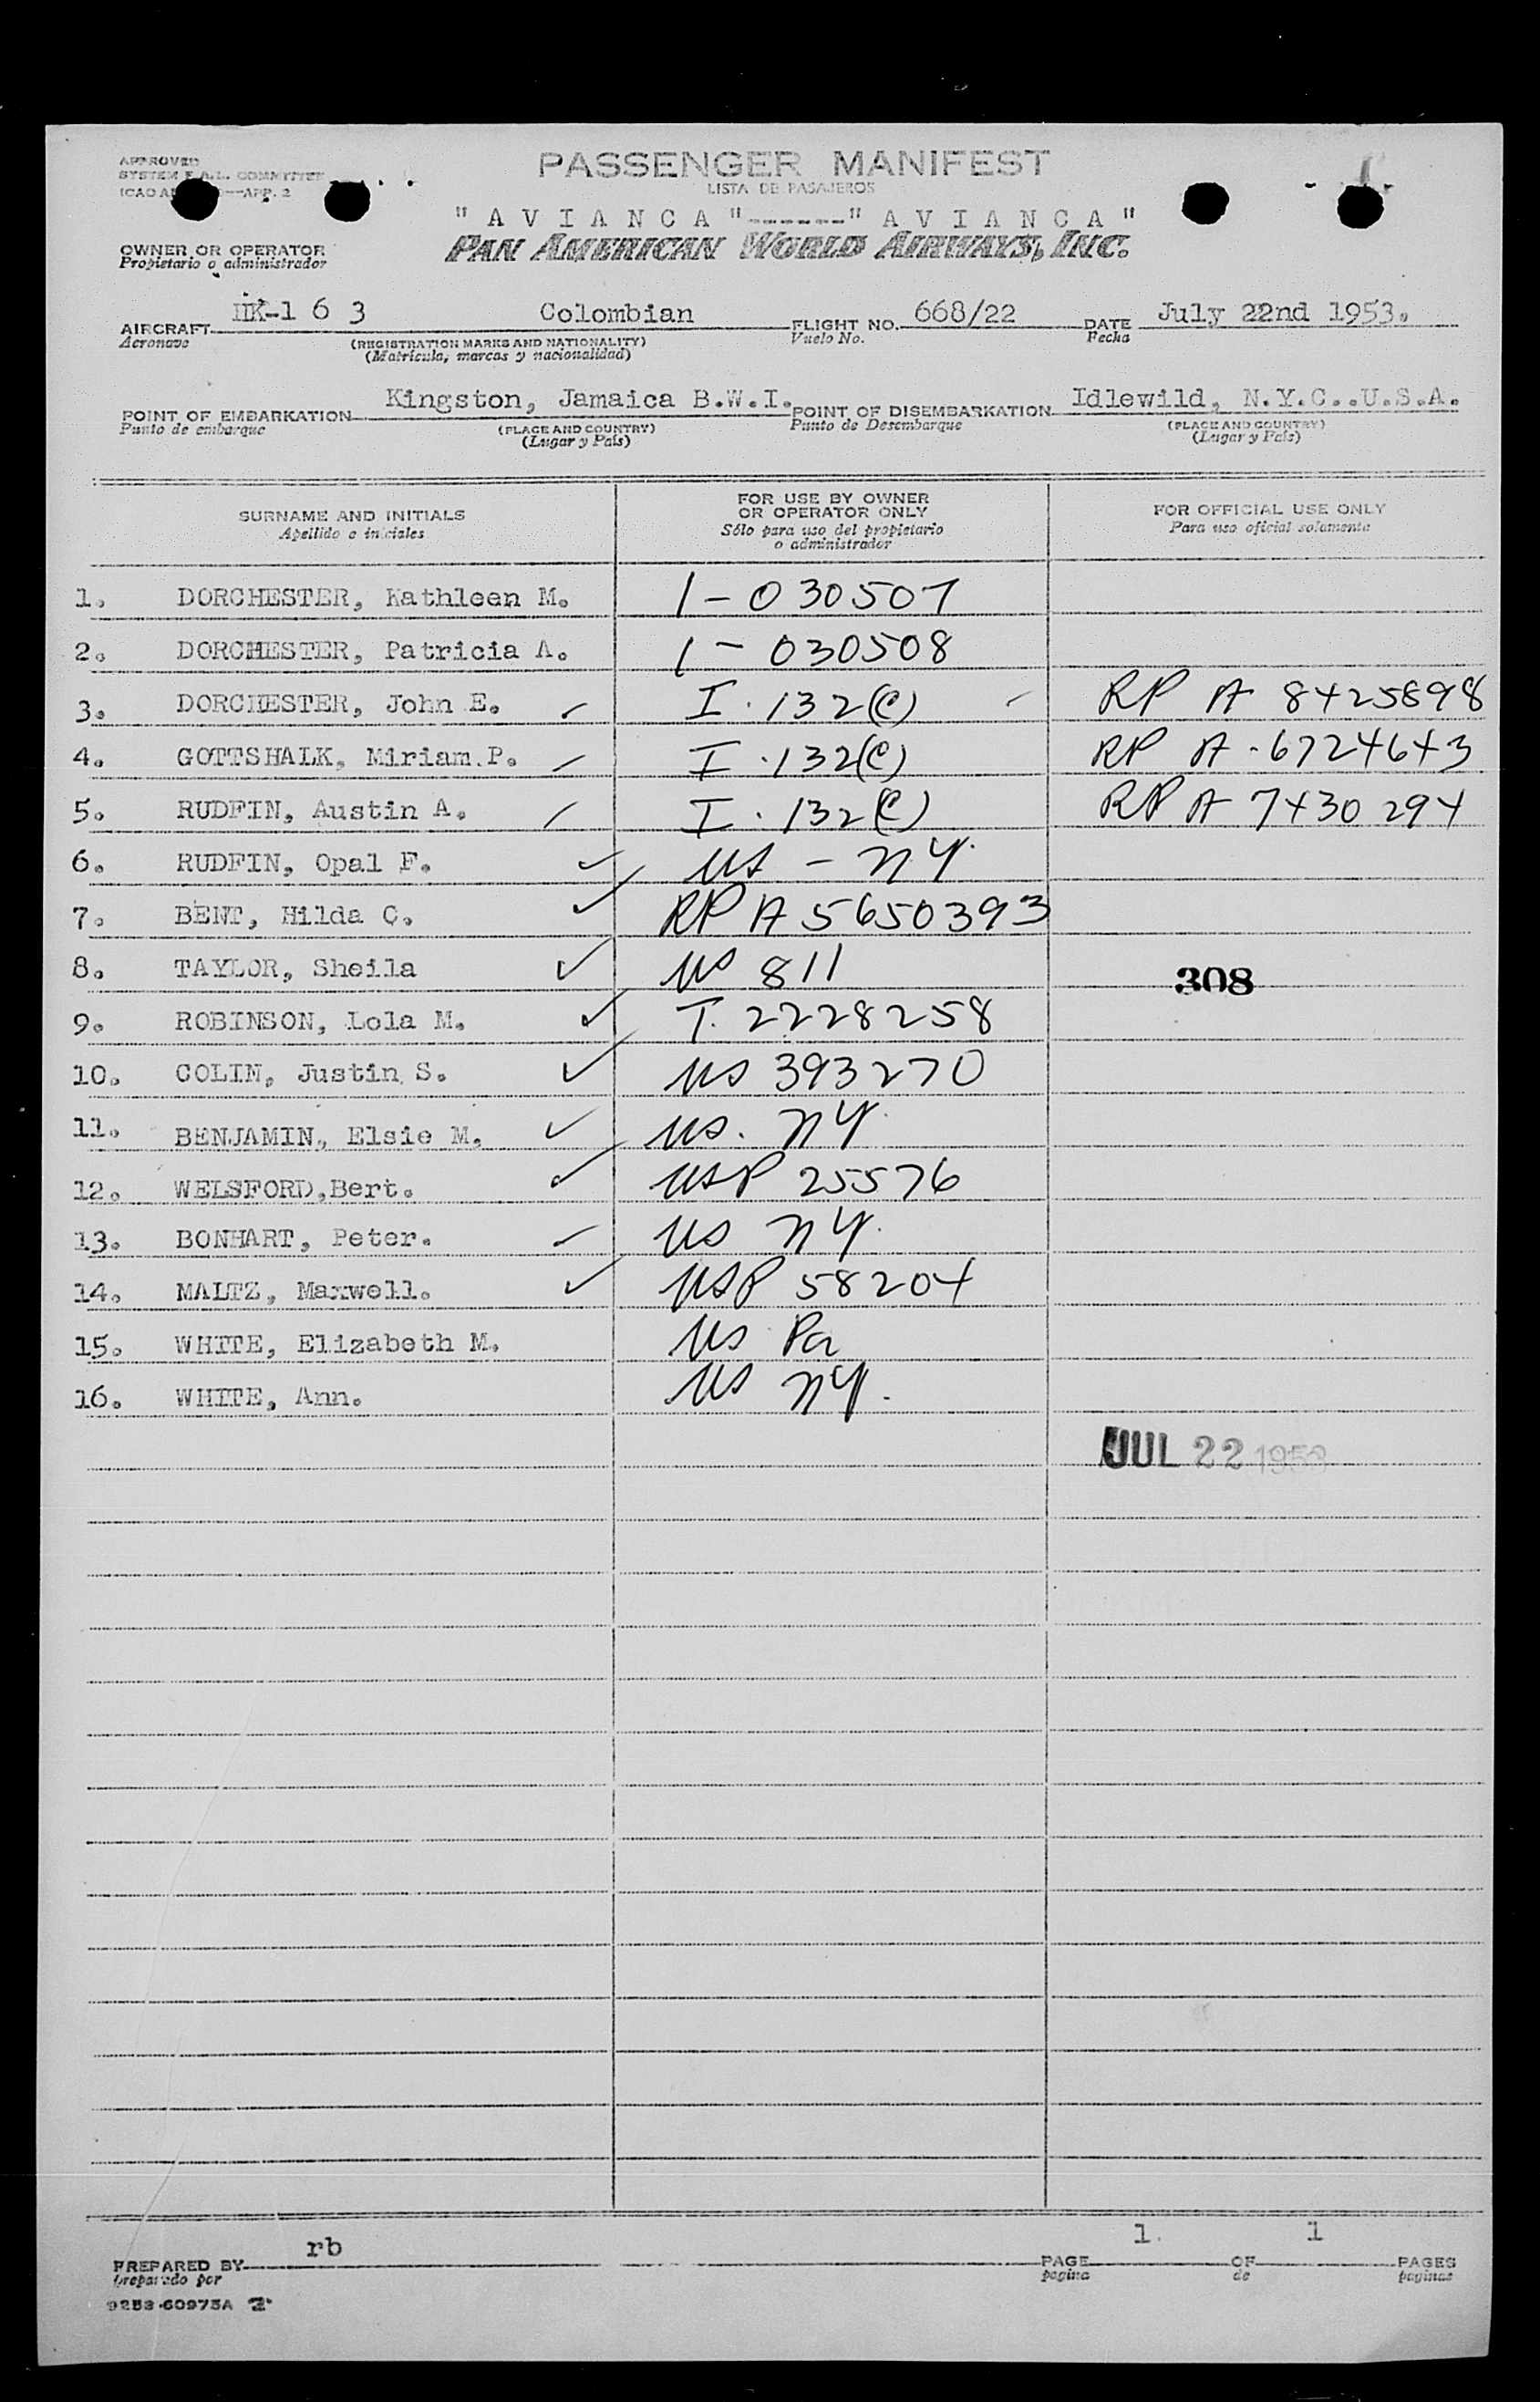 APPROVED
SYSTEM F.A.L. COMMITTEE
ICAO —APP. 2
PASSENGER MANIFEST
LISTA DE PASAJEROS
" A V I A N C A "------" A V I A N C A "
PAN AMERICAN WORLD AIRWAYS, INC.
OWNER OR OPERATOR
Propietario o administrador
AIRCRAFT HK-1 6 3 Colombian FLIGHT NO. 668/22 DATE July 22nd 1953.
Aeronave (REGISTRATION MARKS AND NATIONALITY) Vuelo No. Fecha
(Matrícula, marcas y nacionalidad)
POINT OF EMBARKATION Kingston, Jamaica B.W.I. POINT OF DISEMBARKATION Idlewild, N.Y.C..U.S.A.
Punto de embarque (PLACE AND COUNTRY) Punto de Desembarque (PLACE AND COUNTRY)
(Lugar y País) (Lugar y País)
SURNAME AND INITIALS FOR USE BY OWNER OR OPERATOR ONLY FOR OFFICIAL USE ONLY
Apellido e iniciales Sólo para uso del propietario o administrador Para uso oficial solamente
1. DORCHESTER, Kathleen M. 1-030507
2. DORCHESTER, Patricia A. 1-030508
3. DORCHESTER, John E. I.132(C) RP A 8425898
4. GOTTSHALK, Miriam.P. I.132(C) RP A-6724643
5. RUDFIN, Austin A. I.132(C) RP A 7430294
6. RUDFIN, Opal F. US - NY.
7. BENT, Hilda C. RP A 5650393
8. TAYLOR, Sheila US 811 308
9. ROBINSON, Lola M. T. 2228258
10. COLIN, Justin S. US 393270
11. BENJAMIN, Elsie M. US. NY.
12. WELSFORD,Bert. USP 25576
13. BONHART, Peter. US NY.
14. MALTZ, Maxwell. USP 58204
15. WHITE, Elizabeth M. US Pa
16. WHITE, Ann. US NY.
JUL 22 1953
PREPARED BY rb PAGE 1. OF 1 PAGES
preparado por pagina de paginas
9253-60975A 2